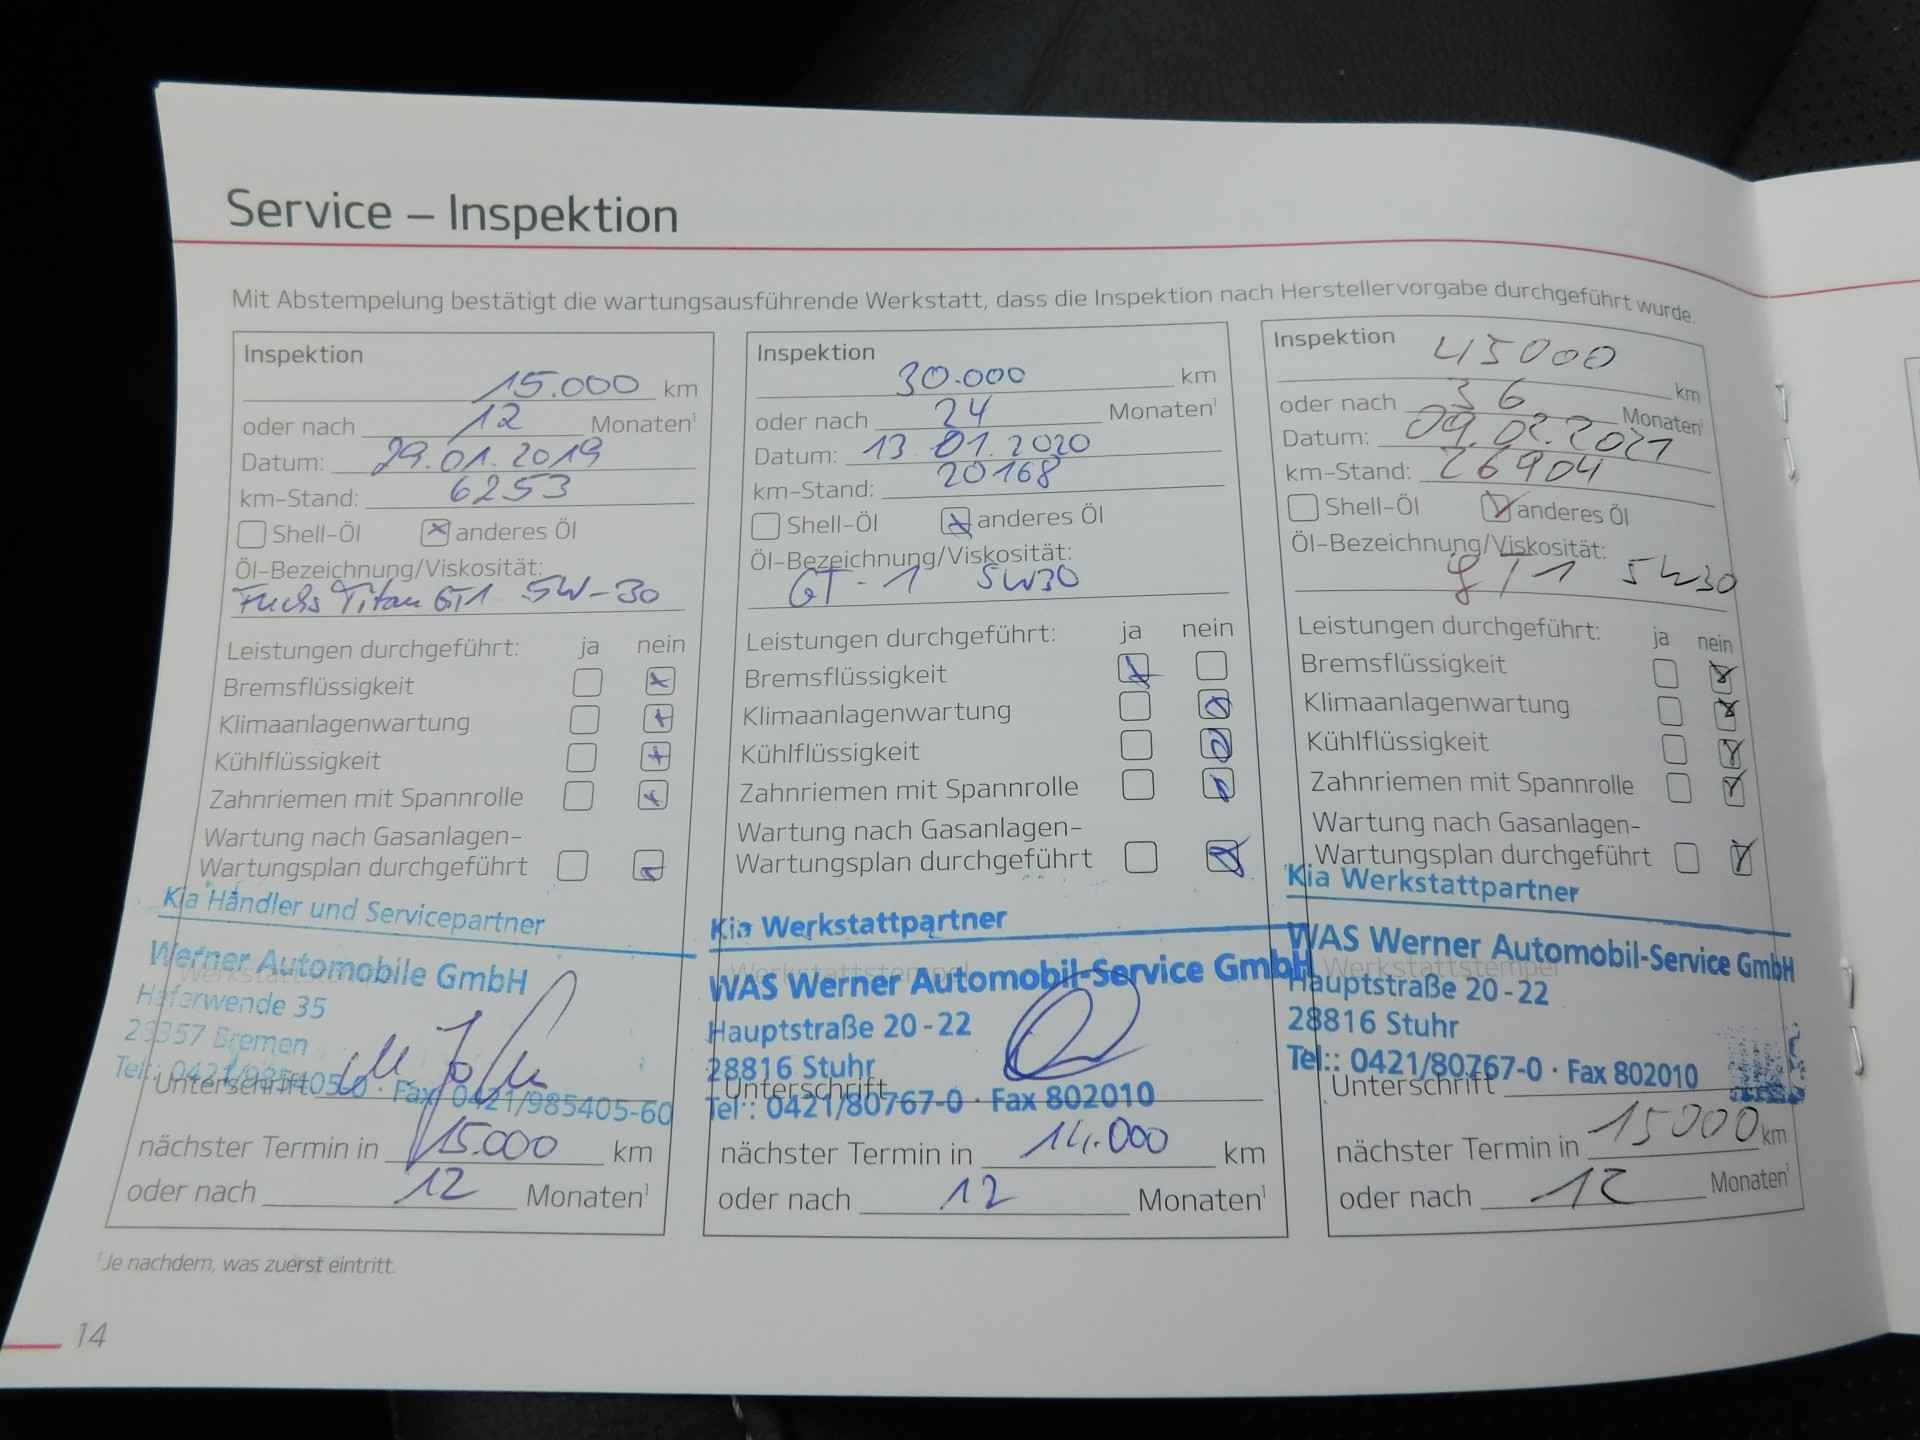 Service – Inspektion
Mit Abstempelung bestätigt die wartungsausführende Werkstatt, dass die Inspektion nach Herstellervorgabe durchgeführt wurde.
Inspektion
15.000 km
oder nach 12 Monaten¹
Datum: 29.01.2019
km-Stand: 6253
Shell-Öl x anderes Öl
Öl-Bezeichnung/Viskosität:
Fuchs Titan GT1 5W-30
Leistungen durchgeführt: ja nein
Bremsflüssigkeit
Klimaanlagenwartung
Kühlflüssigkeit
Zahnriemen mit Spannrolle
Wartung nach Gasanlagen-
Wartungsplan durchgeführt
Kia Händler und Servicepartner
Werner Automobile GmbH
Werkstattstempel
Haferwende 35
28357 Bremen
Tel.: 0421/985405-0 · Fax 0421/985405-60
Unterschrift
nächster Termin in 15.000 km
oder nach 12 Monaten¹
Inspektion
30.000 km
oder nach 24 Monaten¹
Datum: 13.01.2020
km-Stand: 20168
Shell-Öl x anderes Öl
Öl-Bezeichnung/Viskosität:
GT-1 5W30
Leistungen durchgeführt: ja nein
Bremsflüssigkeit
Klimaanlagenwartung
Kühlflüssigkeit
Zahnriemen mit Spannrolle
Wartung nach Gasanlagen-
Wartungsplan durchgeführt
Kia Werkstattpartner
Werkstattstempel
WAS Werner Automobil-Service GmbH
Hauptstraße 20-22
28816 Stuhr
Unterschrift
Tel.: 0421/80767-0 · Fax 802010
nächster Termin in 14.000 km
oder nach 12 Monaten¹
Inspektion 45000
km
oder nach 36 Monaten¹
Datum: 09.02.2021
km-Stand: 26904
Shell-Öl anderes Öl
Öl-Bezeichnung/Viskosität:
GT1 5W30
Leistungen durchgeführt: ja nein
Bremsflüssigkeit
Klimaanlagenwartung
Kühlflüssigkeit
Zahnriemen mit Spannrolle
Wartung nach Gasanlagen-
Wartungsplan durchgeführt
Kia Werkstattpartner
WAS Werner Automobil-Service GmbH
Werkstattstempel
Hauptstraße 20-22
28816 Stuhr
Tel.: 0421/80767-0 · Fax 802010
Unterschrift
nächster Termin in 15000 km
oder nach 12 Monaten¹
¹Je nachdem, was zuerst eintritt.
14